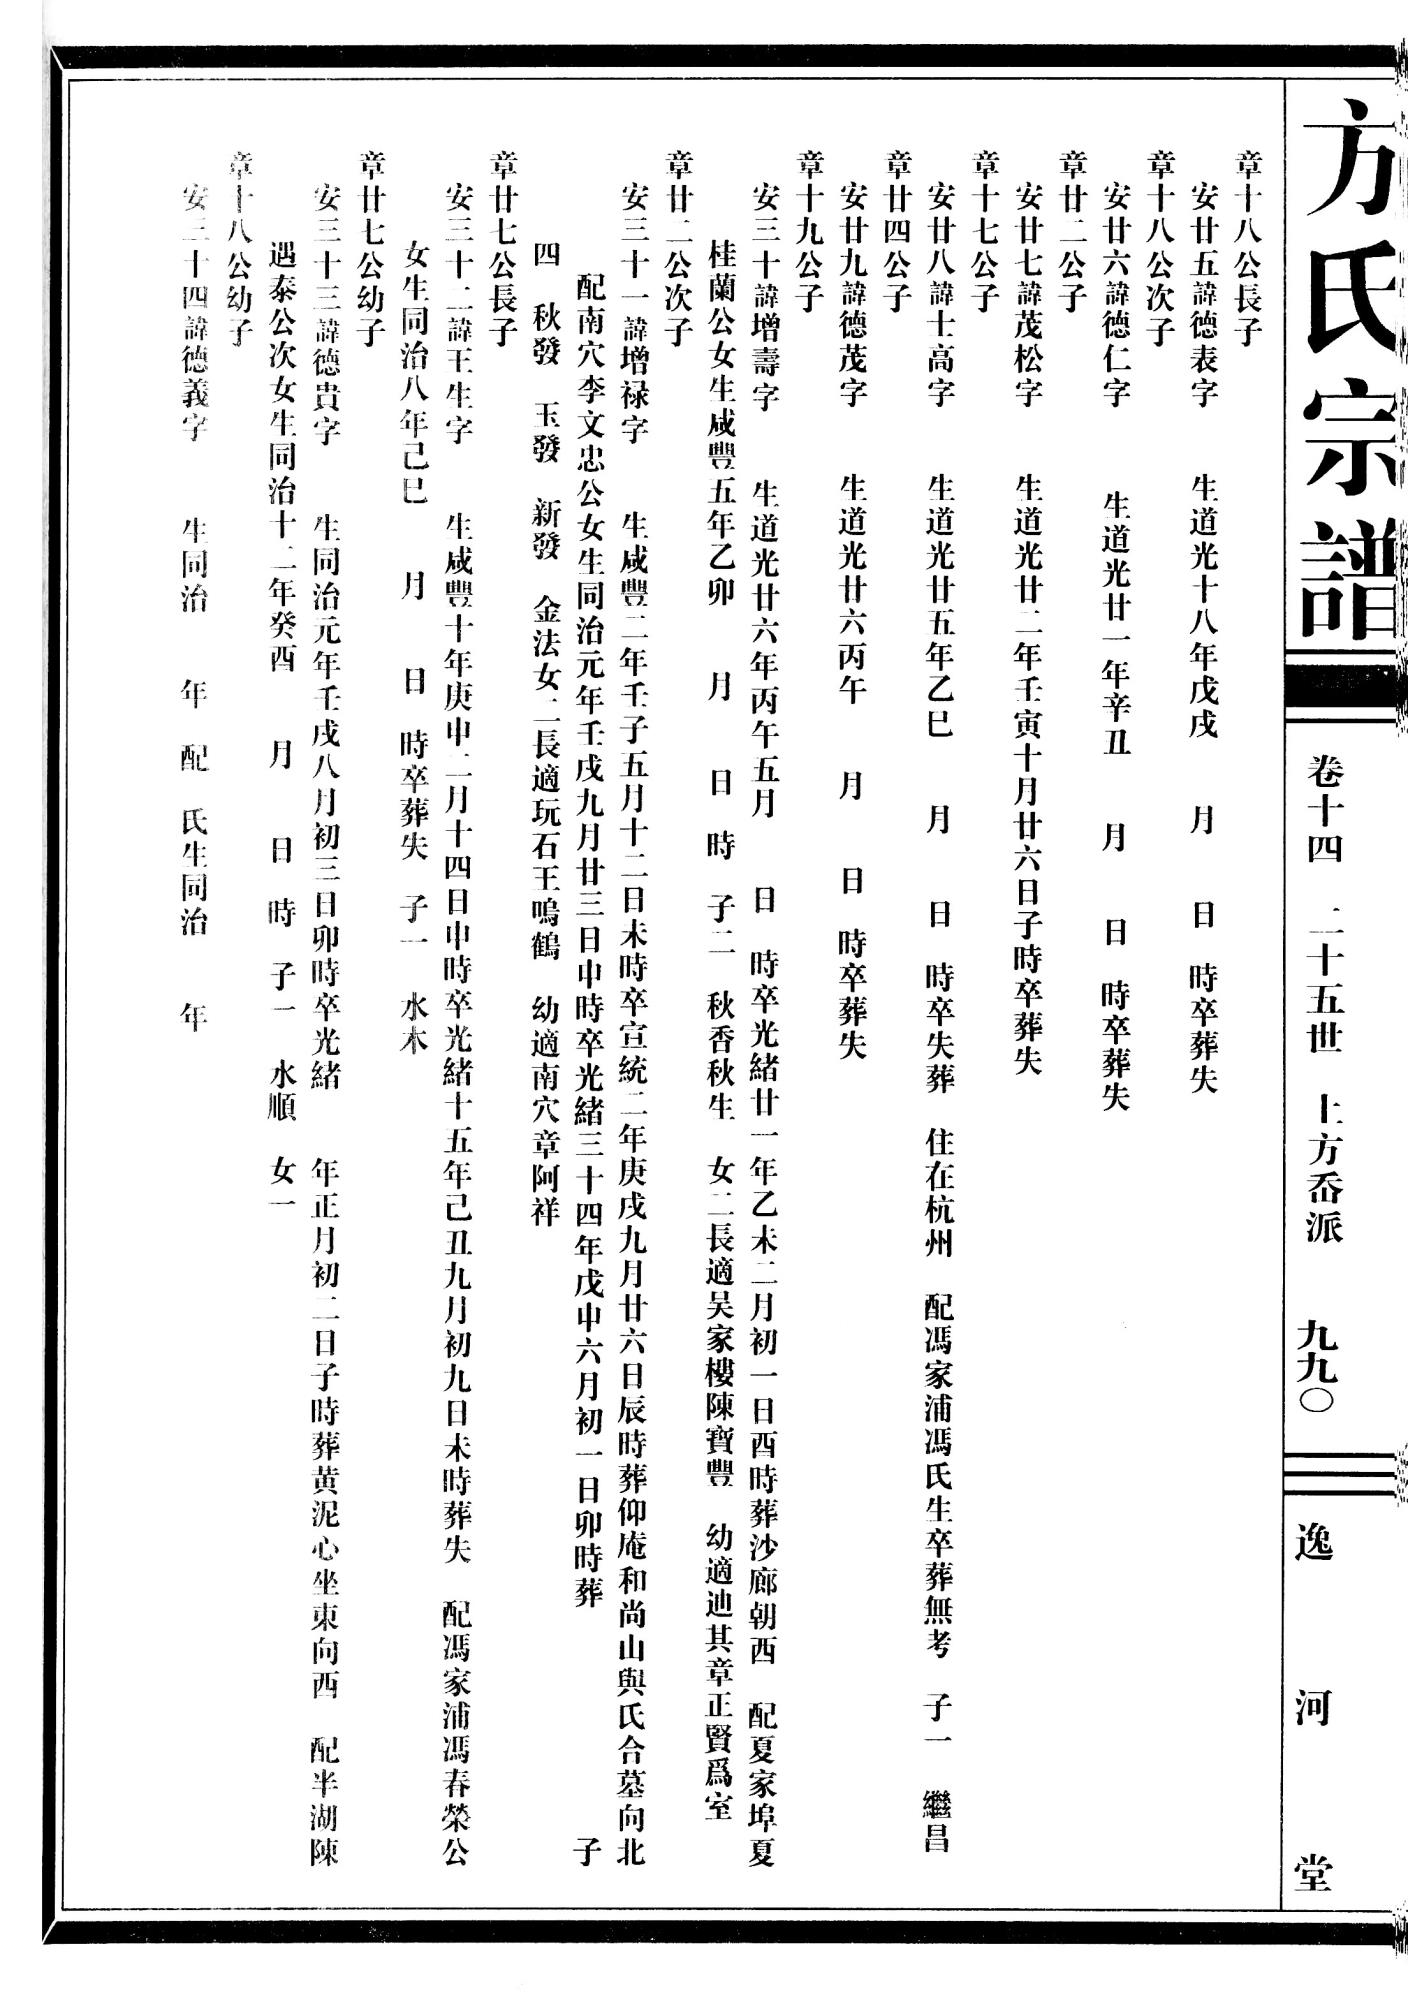 方氏宗譜
卷十四 二十五世 上方岙派 九九〇
逸河堂
章十八公長子
安廿五諱德表字 生道光十八年戊戌 月 日 時卒葬失
章十八公次子
安廿六諱德仁字 生道光廿一年辛丑 月 日 時卒葬失
章廿二公子
安廿七諱茂松字 生道光廿二年壬寅十月廿六日子時卒葬失
章十七公子
安廿八諱士高字 生道光廿五年乙巳 月 日 時卒失葬 住在杭州 配馮家浦馮氏生卒葬無考 子一 繼昌
章廿四公子
安廿九諱德茂字 生道光廿六丙午 月 日 時卒葬失
章十九公子
安三十諱增壽字 生道光廿六年丙午五月 日 時卒光緒廿一年乙未二月初一日酉時葬沙廊朝西 配夏家埠夏
桂蘭公女生咸豐五年乙卯 月 日 時 子二 秋香秋生 女二長適吴家樓陳寶豐 幼適迪其章正賢爲室
章廿二公次子
安三十一諱增禄字 生咸豐二年壬子五月十二日未時卒宣統二年庚戌九月廿六日辰時葬仰庵和尚山與氏合墓向北
配南穴李文忠公女生同治元年壬戌九月廿三日申時卒光緒三十四年戊申六月初一日卯時葬 子
四 秋發 玉發 新發 金法女二長適玩石王鳴鶴 幼適南穴章阿祥
章廿七公長子
安三十二諱王生字 生咸豐十年庚申二月十四日申時卒光緒十五年己丑九月初九日未時葬失 配馮家浦馮春榮公
女生同治八年己巳 月 日 時卒葬失 子一 水木
章廿七公幼子
安三十三諱德貴字 生同治元年壬戌八月初三日卯時卒光緒 年正月初二日子時葬黄泥心坐東向西 配半湖陳
遇泰公次女生同治十二年癸酉 月 日 時 子一 水順 女一
章十八公幼子
安三十四諱德義字 生同治 年 配 氏生同治 年